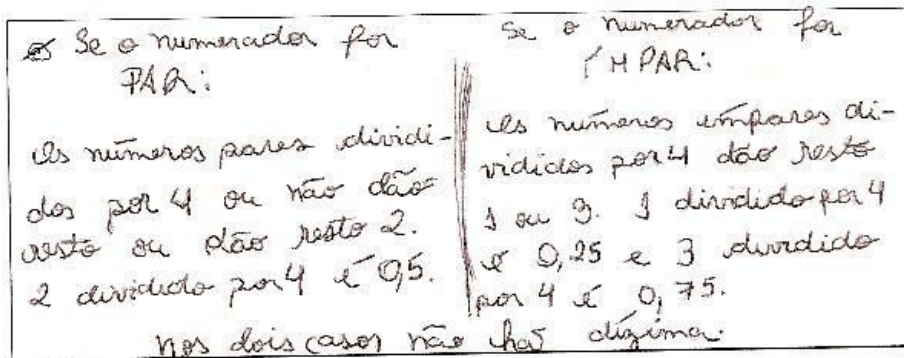 Se o numerador for
PAR:
Os números pares dividi-
dos por 4 ou não dão
resto ou dão resto 2.
2 dividido por 4 é 0,5.
Se o numerador for
ÍMPAR:
Os números ímpares di-
vididos por 4 dão resto
1 ou 3. 1 dividido por 4
é 0,25 e 3 dividido
por 4 é 0,75.
Nos dois casos não há dízima.